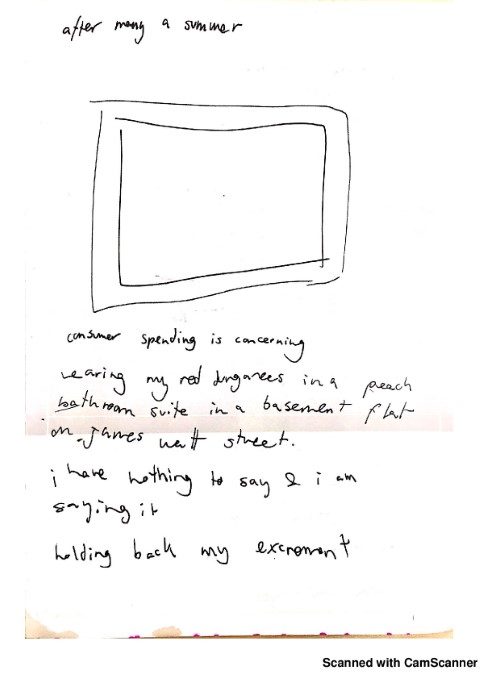 after many a summer
consumer spending is concerning
wearing my red dungarees in a peach
bathroom suite in a basement flat
on james watt street.
i have nothing to say & i am
saying it
holding back my excrement
Scanned with CamScanner